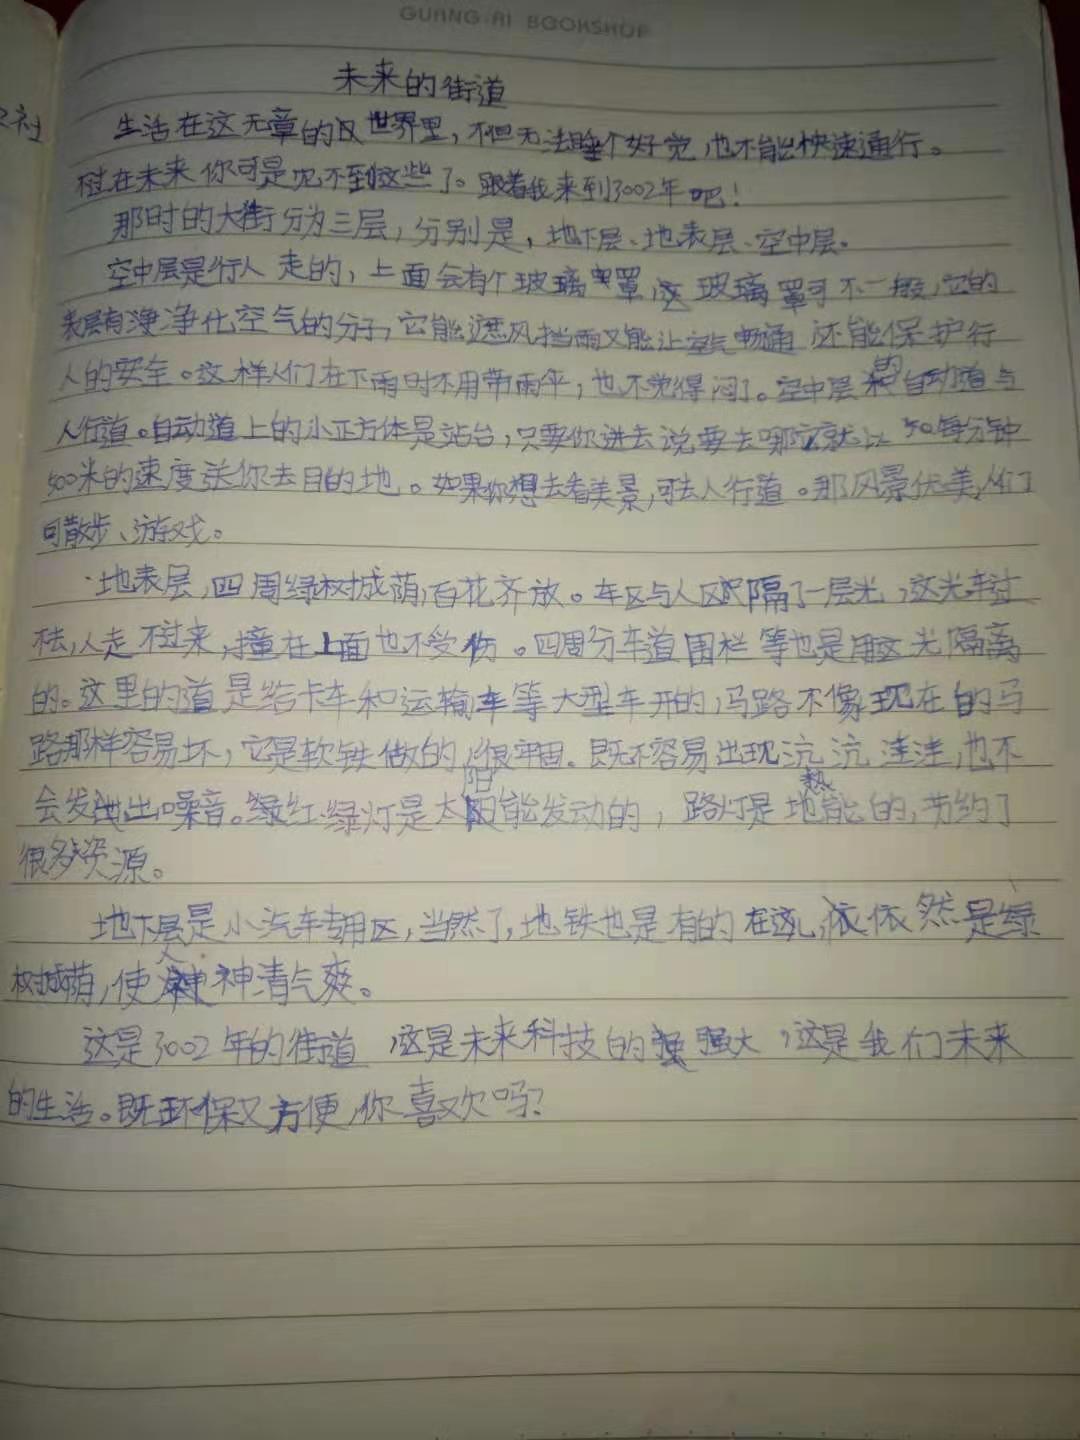 GUANG AI BOOKSHOP
社
未来的街道
生活在这无章的世界里，不但无法睡个好觉，也不能快速通行。
不过在未来你可是见不到这些了。跟着我来到3002年吧！
那时的大街分为三层，分别是，地下层、地表层、空中层。
空中层是行人走的，上面会有个玻璃罩，这玻璃罩可不一般，它的
表层有净化空气的分子，它能遮风挡雨又能让空气畅通还能保护行
人的安全。这样人们在下雨时不用带雨伞，也不觉得闷了。空中层自动道与
人行道。自动道上的小正方体是站台，只要你进去说要去哪就以每分钟
500米的速度送你去目的地。如果你想去看美景，可去人行道。那风景优美，人们
可散步、游戏。
地表层，四周绿树城荫，百花齐放。车区与人区隔了一层光，这光车过
不去，人走不过来，撞在上面也不受伤。四周分车道围栏等也是用这光隔离
的。这里的道是给卡车和运输车等大型车开的，马路不像现在的马
路那样容易坏，它是软铁做的，很牢固。既不容易出现沆沆洼洼，也不
会发出噪音。红绿灯是太阳能发动的，路灯是地热能的，节约了
很多资源。
地下层是小汽车专用区，当然了，地铁也是有的在这儿，依然是绿
树城荫，使人神清气爽。
这是3002年的街道，这是未来科技的强大，这是我们未来
的生活。既环保又方便，你喜欢吗？